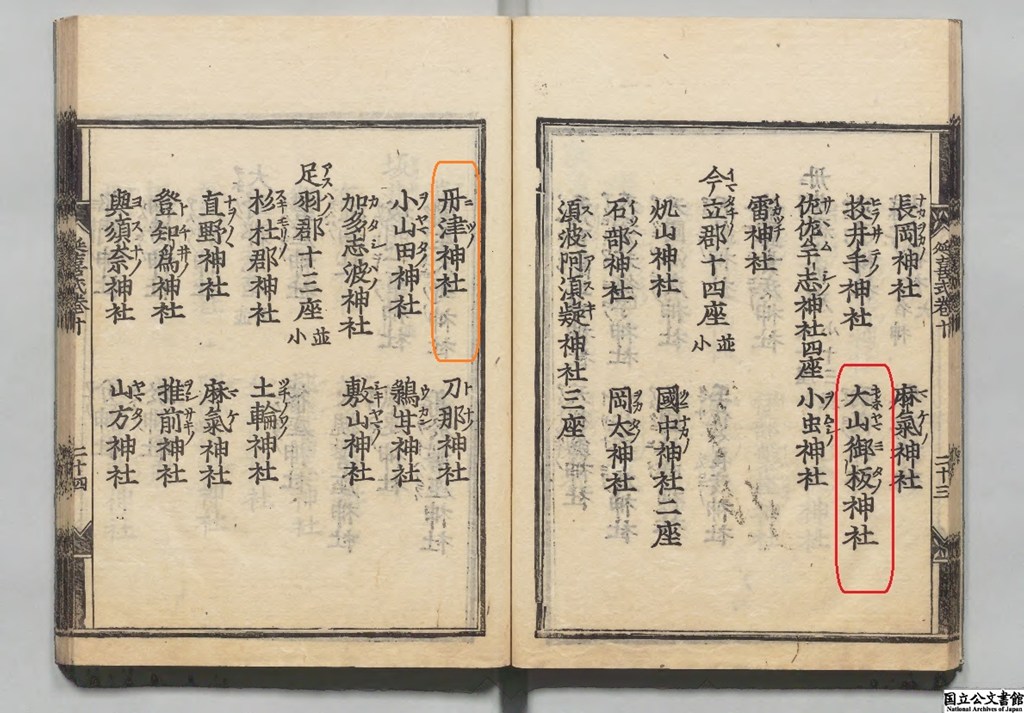 延喜式卷十 二十三
長岡神社 麻氣神社
枚井手神社 大山御板神社
佐佐牟志神社四座 小虫神社
雷神社
今立郡十四座 並小
杋山神社 國中神社二座
石部神社 岡太神社
湏波阿湏疑神社三座
丹津神社 刀那神社
小山田神社 鵜甘神社
加多志波神社 敷山神社
足羽郡十三座 並小
杉杜郡神社 土輪神社
直野神社 麻氣神社
登知爲神社 推前神社
與湏奈神社 山方神社
延喜式卷十 二十四
国立公文書館
National Archives of Japan